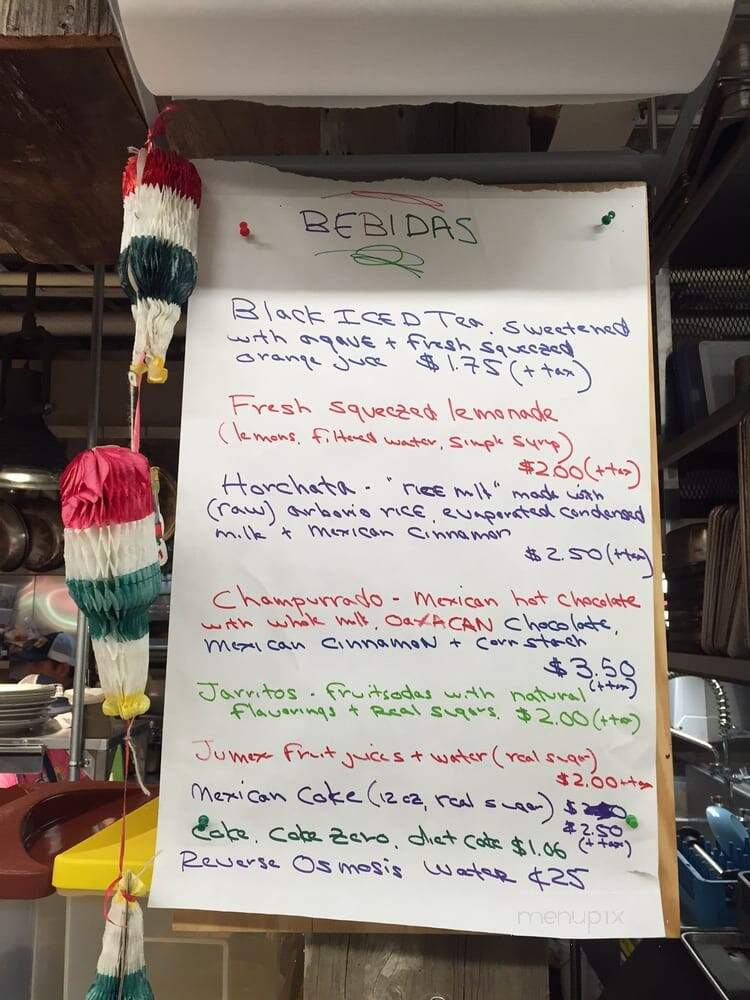 BEBIDAS
Black ICED Tea. Sweetened
with agave + fresh squeezed
orange juce $1.75 (+ tax)
Fresh squeezed lemonade
(lemons, filtered water, simple syrup)
$2.00 (+ tax)
Horchata - "rice milk" made with
(raw) arborio rice, evaporated condensed
milk + Mexican Cinnamon
$2.50 (+ tax)
Champurrado - Mexican hot chocolate
with whole milk, OaXACAN Chocolate,
Mexican Cinnamon + Corn starch
$3.50
(+ tax)
Jarritos - Fruitsodas with natural
flavorings + Real sugars. $2.00 (+ tax)
Jumex Fruit juices + water (real sugar)
$2.00 + tax
Mexican Coke (12 oz, real sugar)
$2.50
(+ tax)
Coke, Coke Zero, diet Coke $1.06
Reverse Osmosis Water ¢25
menupix